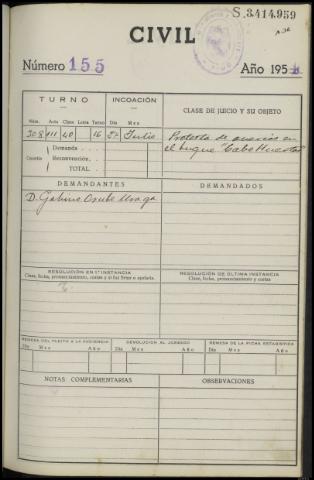 S.3.414.959
CIVIL
Número 155
Año 195
TURNO
INCOACIÓN
CLASE DE JUICIO Y SU OBJETO
Núm. Acto Clase Letra Turno
Día Mes
308 111 40 16 2 Julio
Protesta de averías en
el buque "Cabo Huertas"
Cuantía
Demanda
Reconvención
TOTAL
DEMANDANTES
DEMANDADOS
D. Gabino
RESOLUCIÓN EN 1.ª INSTANCIA
Clase, fecha, pronunciamiento, costas y si fué firme o apelada.
RESOLUCIÓN DE ÚLTIMA INSTANCIA
Clase, fecha, pronunciamiento y costas
REMESA DEL PLEITO A LA AUDIENCIA
DEVOLUCIÓN AL JUZGADO
REMESA DE LA FICHA ESTADÍSTICA
Día Mes Año
Día Mes Año
Día Mes Año
NOTAS COMPLEMENTARIAS
OBSERVACIONES